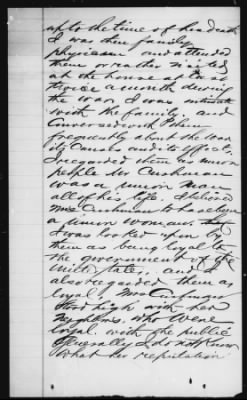 up to the time of her death
I was their family
physician and attended
them or rather visited
at the house at least
twice a month during
the war, I was intimate
with the family, and
conversed with them
frequently about the war
its causes and its effects,
I regarded them as union
people Mr Cushman
was a union man
all of his life, I believed
Mrs Cushman to have been
a union woman.
I was looked upon by
them as being loyal to
the government of the
United States, and I
also regarded them as
loyal, Mrs Cushman
stood high with her
neighbors who were
loyal. with the public
generally I do not know
what her reputation